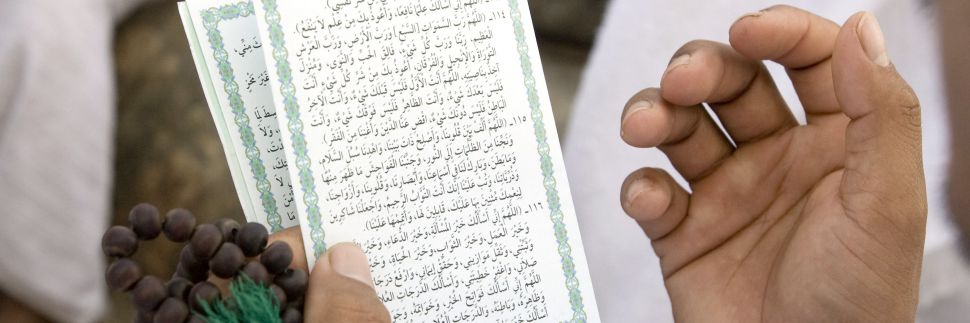 نفسي)
(اللَّهُمَّ إِنِّي أَسْأَلُكَ عِلْمًا نَافِعًا، وَأَعُوذُ بِكَ مِنْ عِلْمٍ لَا يَنْفَعُ)
١١٤- (اللَّهُمَّ رَبَّ السَّمَاوَاتِ [السَّبْعِ] وَرَبَّ الْأَرْضِ، وَرَبَّ الْعَرْشِ
الْعَظِيمِ، رَبَّنَا وَرَبَّ كُلِّ شَيْءٍ، فَالِقَ الْحَبِّ وَالنَّوَى، وَمُنْزِلَ
التَّوْرَاةِ وَالْإِنْجِيلِ وَالْفُرْقَانِ، أَعُوذُ بِكَ مِنْ شَرِّ كُلِّ شَيْءٍ أَنْتَ
آخِذٌ بِنَاصِيَتِهِ، اللَّهُمَّ أَنْتَ الْأَوَّلُ فَلَيْسَ قَبْلَكَ شَيْءٌ، وَأَنْتَ الْآخِرُ
فَلَيْسَ بَعْدَكَ شَيْءٌ، وَأَنْتَ الظَّاهِرُ فَلَيْسَ فَوْقَكَ شَيْءٌ، وَأَنْتَ
الْبَاطِنُ فَلَيْسَ دُونَكَ شَيْءٌ، اقْضِ عَنَّا الدَّيْنَ وَأَغْنِنَا مِنَ الْفَقْرِ)
١١٥- (اللَّهُمَّ أَلِّفْ بَيْنَ قُلُوبِنَا، وَأَصْلِحْ ذَاتَ بَيْنِنَا، وَاهْدِنَا سُبُلَ السَّلَامِ،
وَنَجِّنَا مِنَ الظُّلُمَاتِ إِلَى النُّورِ، وَجَنِّبْنَا الْفَوَاحِشَ مَا ظَهَرَ مِنْهَا
وَمَا بَطَنَ، وَبَارِكْ لَنَا فِي أَسْمَاعِنَا، وَأَبْصَارِنَا، وَقُلُوبِنَا، وَأَزْوَاجِنَا،
وَذُرِّيَّاتِنَا، وَتُبْ عَلَيْنَا إِنَّكَ أَنْتَ التَّوَّابُ الرَّحِيمُ، وَاجْعَلْنَا شَاكِرِينَ
لِنِعَمِكَ مُثْنِينَ بِهَا عَلَيْكَ، قَابِلِينَ لَهَا، وَأَتْمِمْهَا عَلَيْنَا)
١١٦- (اللَّهُمَّ إِنِّي أَسْأَلُكَ خَيْرَ الْمَسْأَلَةِ، وَخَيْرَ الدُّعَاءِ، وَخَيْرَ
وَخَيْرَ الْعَمَلِ، وَخَيْرَ الثَّوَابِ، وَخَيْرَ الْحَيَاةِ، وَخَيْرَ
وَثَبِّتْنِي، وَثَقِّلْ مَوَازِينِي، وَحَقِّقْ إِيمَانِي، وَارْفَعْ
صَلَاتِي، وَاغْفِرْ خَطِيئَتِي، وَأَسْأَلُكَ الدَّرَجَاتِ الْعُلَا
اللَّهُمَّ إِنِّي أَسْأَلُكَ فَوَاتِحَ الْخَيْرِ، وَخَوَاتِمَهُ،
وَظَاهِرَهُ، وَبَاطِنَهُ، وَالدَّرَجَاتِ الْعُلَا
أَسْأَلُكَ خَيْرَ